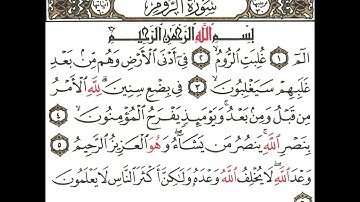 سُورَةُ الرُّومِ
بِسْمِ اللَّهِ الرَّحْمَٰنِ الرَّحِيمِ
الٓمٓ ١ غُلِبَتِ الرُّومُ ٢ فِىٓ أَدْنَى الْأَرْضِ وَهُم مِّنۢ بَعْدِ
غَلَبِهِمْ سَيَغْلِبُونَ ٣ فِى بِضْعِ سِنِينَ ۗ لِلَّهِ الْأَمْرُ
مِن قَبْلُ وَمِنۢ بَعْدُ ۚ وَيَوْمَئِذٍ يَفْرَحُ الْمُؤْمِنُونَ ٤
بِنَصْرِ اللَّهِ ۚ يَنصُرُ مَن يَشَآءُ ۖ وَهُوَ الْعَزِيزُ الرَّحِيمُ ٥
وَعْدَ اللَّهِ ۖ لَا يُخْلِفُ اللَّهُ وَعْدَهُۥ وَلَٰكِنَّ أَكْثَرَ النَّاسِ لَا يَعْلَمُونَ